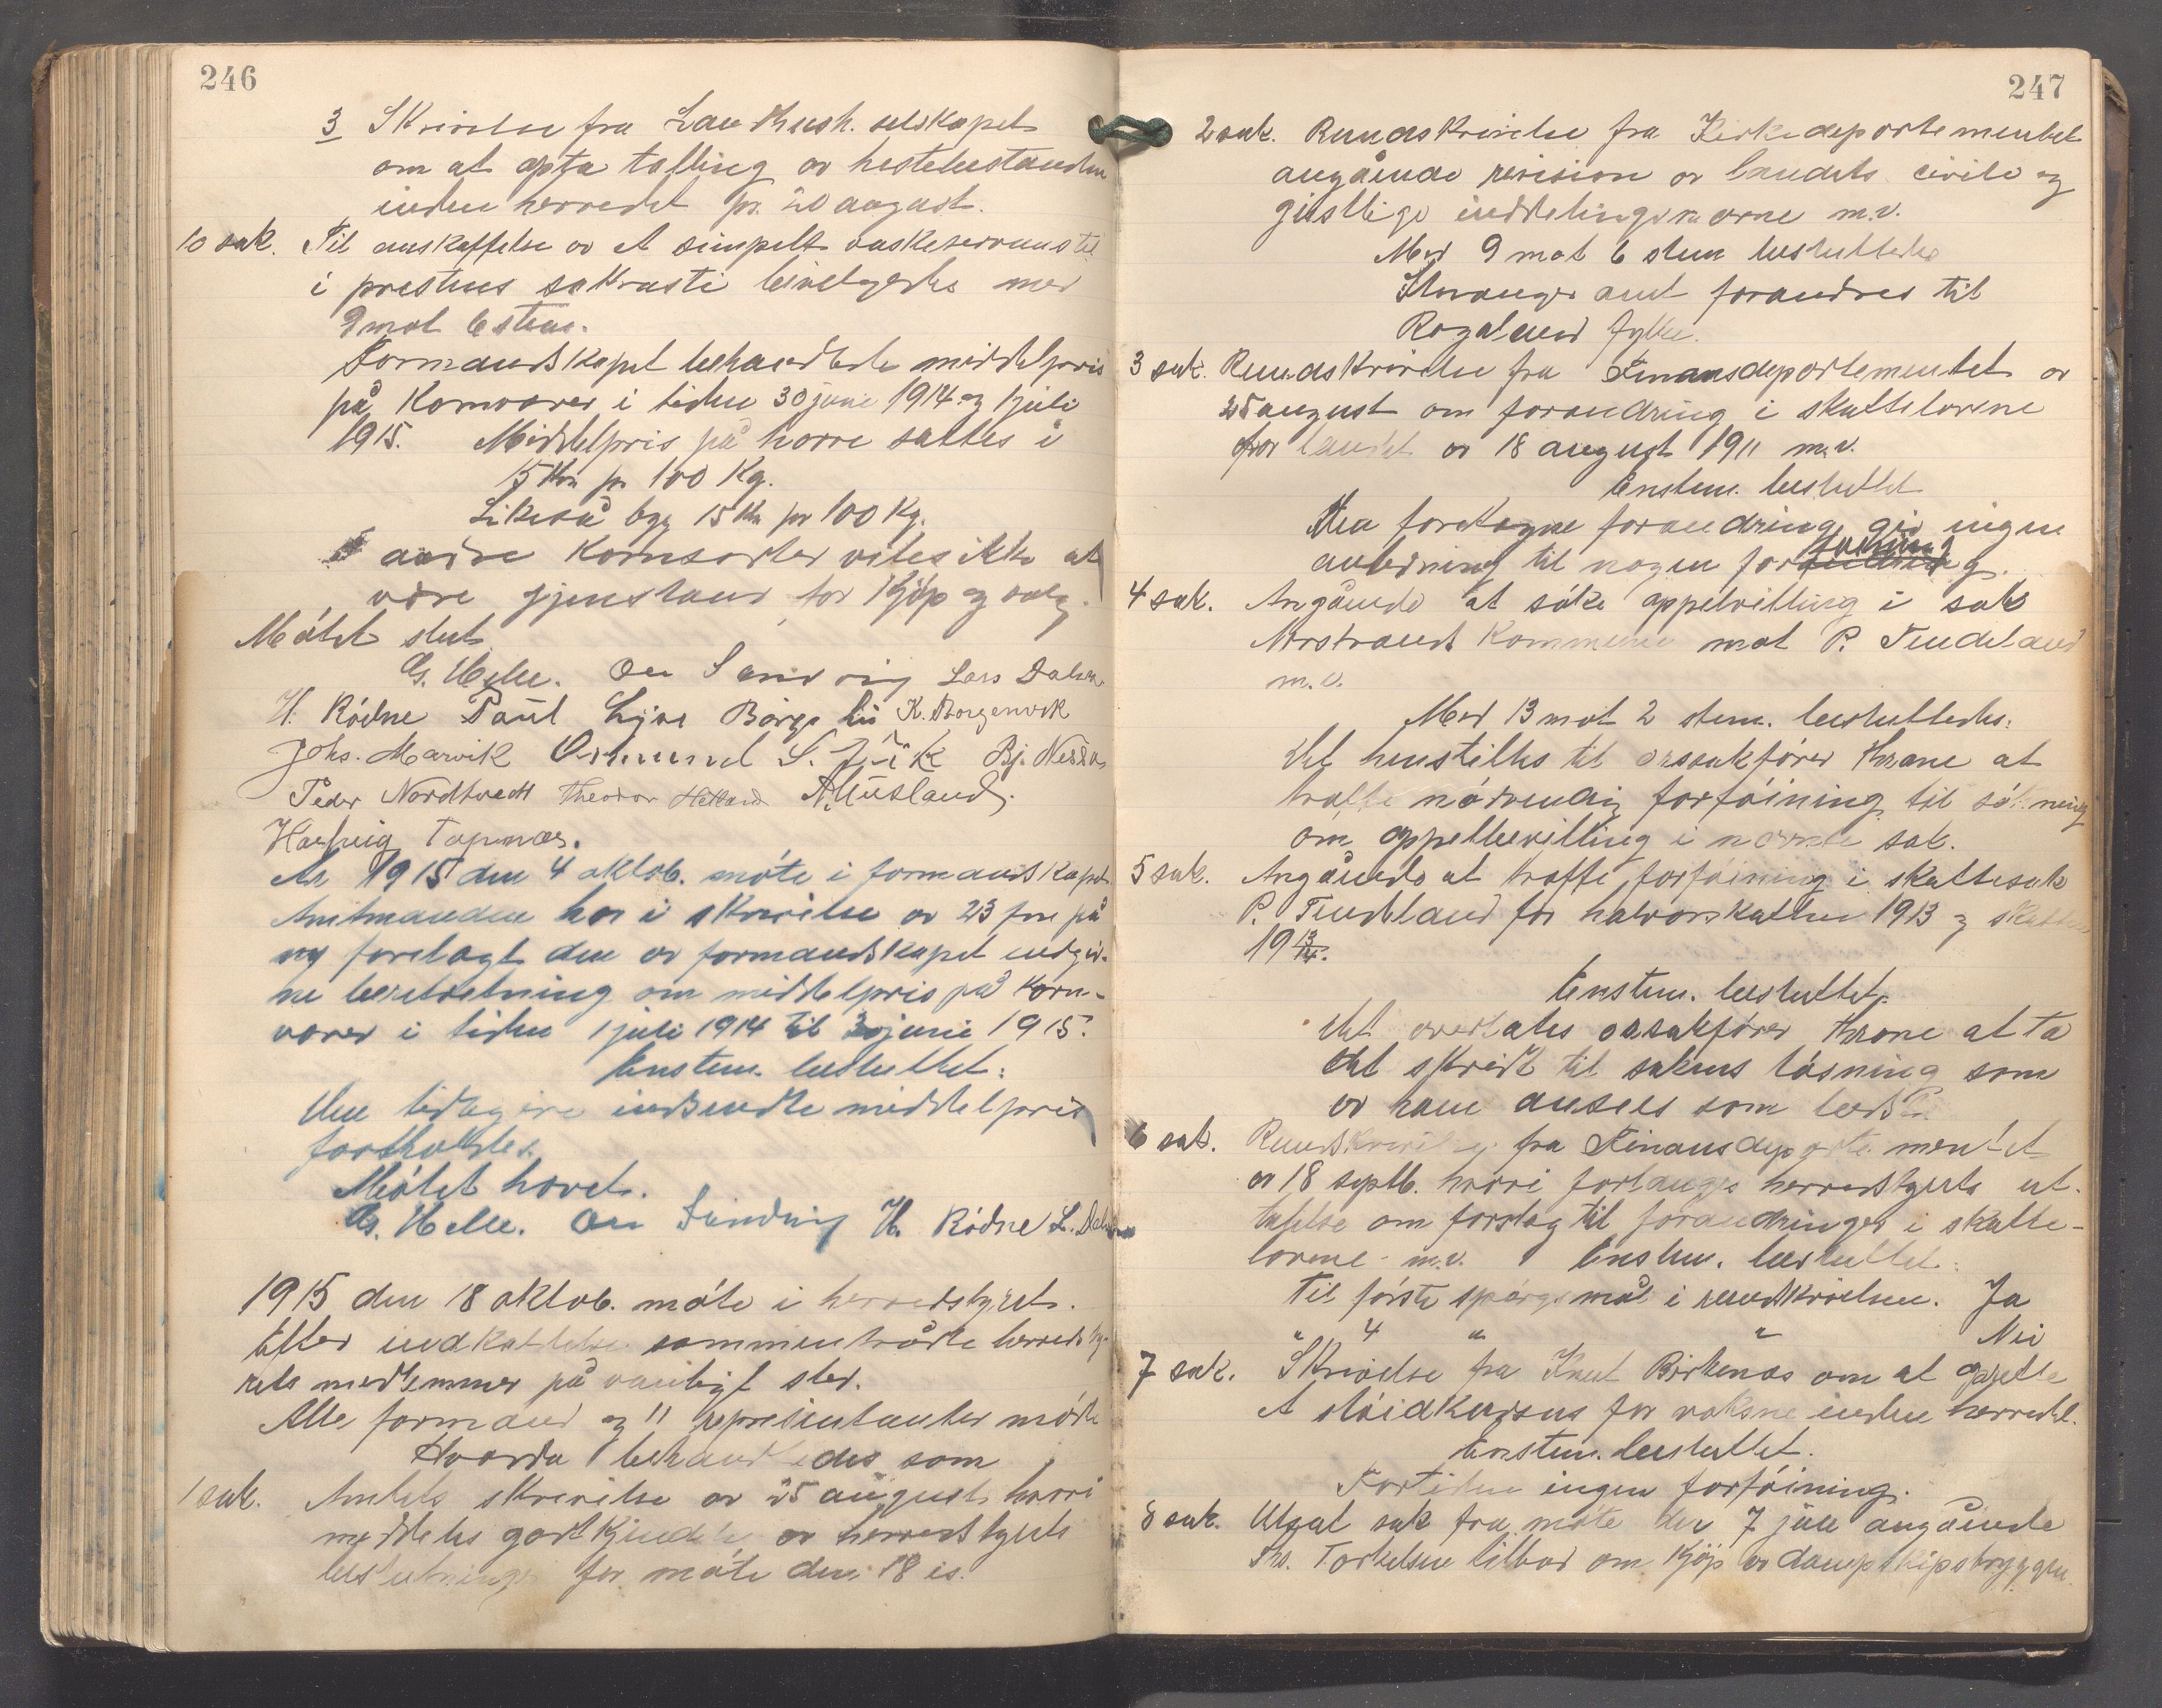 246
3 Skrivelse fra Landhush. selskapet
om at opta tælling av hestebestanden
inden herredet pr. 20 august.
10 sak. Til anskaffelse av et simpelt vaskeservans til
i prestens sakresti bevilgedes med
9 mot 6 stem.
Formandskapet behandlede middelpris
på kornvarer i tiden 30 june 1914 og 1 juli
1915. Middelpris på havre sattes i
15 Kr. pr 100 Kg.
Likeså byg 15 Kr pr 100 Kg.
andre kornsorter vites ikke at
være gjenstand for kjøp og salg.
Møtet slut
G. Helle. On Sandvig Lars Dalen
H. Rödne Paul Lyse Børge Lie K. Borgenvik
Johs. Marvik Osmund S. Vik Bj. Nessa
Peder Nordtveit Theodor Hetland A. Øusland.
Hartvig Tapnæs.
År 1915 den 4 oktob. møte i formandskapet
Amtmanden har i skrivelse av 23 fm på
ny forelagt den av formandskapet indgiv-
ne beretning om middelpris på korn-
varer i tiden 1 juli 1914 til 30 juni 1915.
Enstem. besluttet:
Den tidligere indsendte middelpris
fastholdes.
Møtet hævet.
G. Helle. On Sandvig H. Rödne L. Dalen
1915 den 18 oktob. møte i herredstyret.
Efter indkaldelse sammentrådte herredsty-
rets medlemmer på vanligt sted.
Alle formænd og 11 representanter mødte
Hvorda behandledes som
1 sak. Amtets skrivelse av 25 august hvori
meddeles godtkjendelse av herredstyrets
beslutninger for møte den 18 is.
247
2 sak. Rundskrivelse fra Kirkedepartementet
angående revision av landets civile og
gistlige inddelingsnavne m.v.
Med 9 mot 6 stem besluttedes
Stavanger amt forandres til
Rogaland fylke.
3 sak. Rundskrivelse fra Finansdepartementet av
25 august om forandring i skattelovene
for landet av 18 august 1911 m.v.
Enstem. besluttet
Den foretagne forandring gir ingen
anledning til nogen forføining.
4 sak. Angående at søke appelvilling i sak
Nerstrand kommune mot P. Tindeland
m.v.
Med 13 mot 2 stem. besluttedes:
Det henstilles til orssakfører Krane at
træffe nødvendig forføining til søkning
om appelbevilling i nævnte sak.
5 sak. Angående at træffe forføining i skattesak
P. Tindeland for halvårskatten 1913 og skatten
19 13/14.
Enstem. besluttet.
Det overlates orssakfører Krane at ta
det skridt til sakens løsning som
av ham ansees som bedst.
6 sak. Rundskrivelse fra Finansdepartementet
av 18 septb. hvori forlanges herredstyrets ut-
talelse om forslag til forandringer i skatte-
lovene m.v. Enstem. besluttet:
Til første spørgsmål i rundskrivelsen. Ja
" 4 " " Nei
7 sak. Skrivelse fra Knut Birkenæs om at oprette
et sløidkursus for voksne inden herredet.
Enstem. besluttet.
Fortiden ingen forføining.
8 sak. Utsat sak fra møte den 7 juli angående
Ths. Torkelsen tilbud om kjøp av dampskipsbryggen